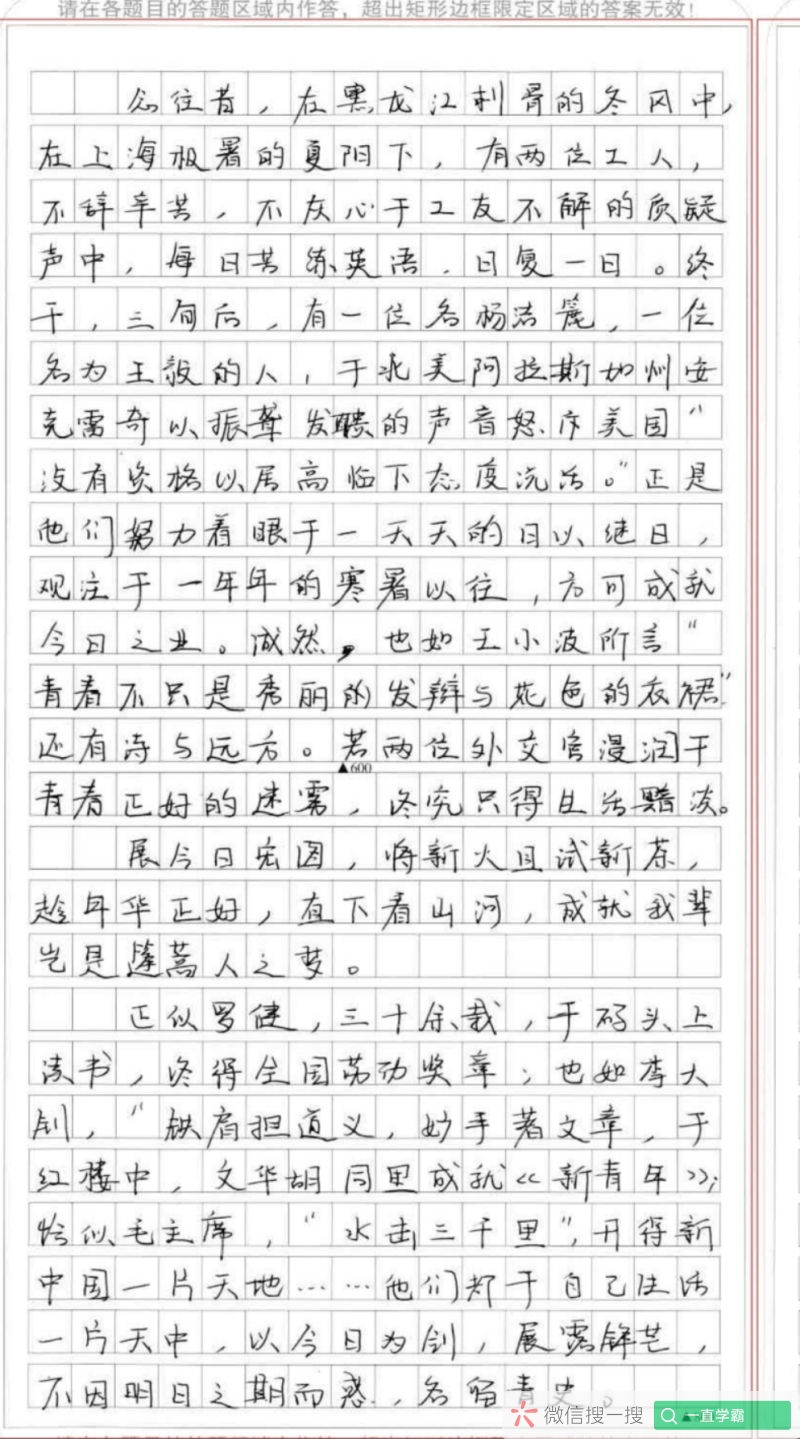 请在各题目的答题区域内作答，超出矩形边框限定区域的答案无效！
忆往昔，在黑龙江刺骨的冬风中，
在上海极暑的夏阳下，有两位工人，
不辞辛苦，不灰心于工友不解的质疑
声中，每日苦练英语，日复一日。终
于，三旬后，有一位名杨洁篪，一位
名为王毅的人，于北美阿拉斯加州安
克雷奇以振聋发聩的声音怒斥美国“
没有资格以居高临下态度说话。”正是
他们努力着眼于一天天的日以继日，
观注于一年年的寒暑以往，方可成就
今日之业。诚然，也如王小波所言“
青春不只是秀丽的发辫与花色的衣裙”
还有诗与远方。若两位外交官漫润于
▲600
青春正好的迷雾，终究只得生活黯淡。
展今日宏图，将新火且试新茶，
趁年华正好，直下看山河，成就我辈
岂是蓬蒿人之梦。
正似罗健，三十余载，于码头上
读书，终得全国劳动奖章；也如李大
钊，“铁肩担道义，妙手著文章，于
红楼中，文华胡同里成就《新青年》；
恰似毛主席，“水击三千里”，开得新
中国一片天地……他们都于自己生活
一片天中，以今日为剑，展露锋芒，
不因明日之期而惑，名留青史。
微信搜一搜
一直学霸